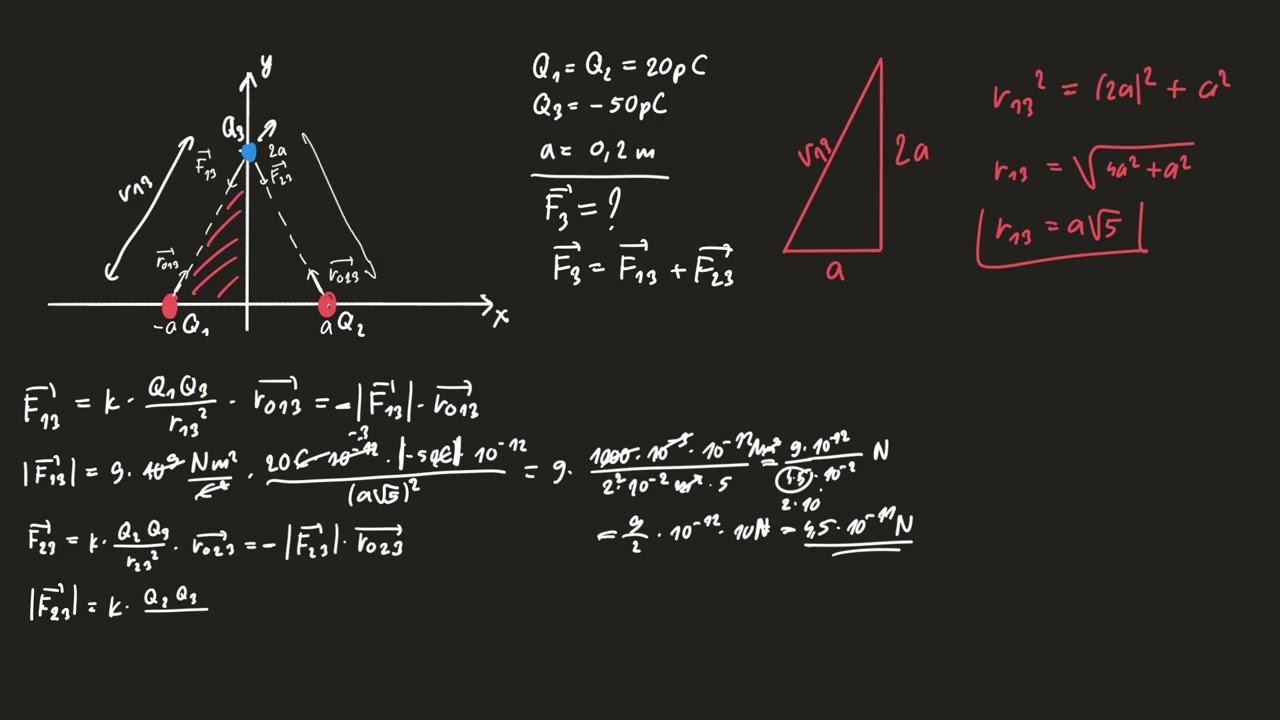 y
Q₃
2a
F₁₃
F₂₃
r₁₃
r₀₁₃
r₀₁₃
-a Q₁
a Q₂
x
Q₁ = Q₂ = 20pC
Q₃ = -50pC
a = 0,2 m
F₃ = ?
F₃ = F₁₃ + F₂₃
r₁₃
2a
a
r₁₃² = (2a)² + a²
r₁₃ = √(4a² + a²)
r₁₃ = a√5
F₁₃ = k · Q₁Q₃ / r₁₃² · r₀₁₃ = -|F₁₃| · r₀₁₃
|F₁₃| = 9 · 10⁹ Nm²/C² · 20C · 10⁻¹² · |-50C| 10⁻¹² / (a√5)² = 9 · 1000 · 10⁻³ · 10⁻¹² Nm² / 2² 10⁻² m² · 5 = 9 · 10⁻¹² / · 10⁻² N
-3
2 · 10
= 9/2 · 10⁻¹² · 10N = 4,5 · 10⁻¹¹ N
F₂₃ = k · Q₂ Q₃ / r₂₃² · r₀₂₃ = -|F₂₃| · r₀₂₃
|F₂₃| = k · Q₂ Q₃